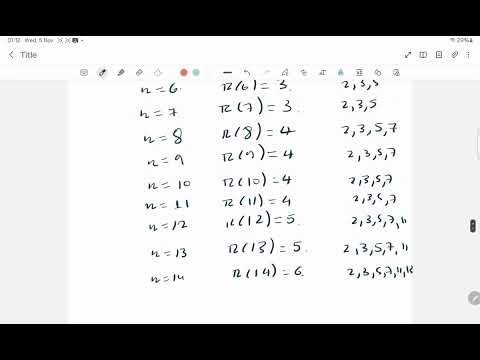 01:12 Wed, 5 Nov 29%
Title
n = 6 π(6) = 3. 2, 3, 5
n = 7 π(7) = 3. 2, 3, 5
n = 8 π(8) = 4 2, 3, 5, 7
n = 9 π(9) = 4 2, 3, 5, 7
n = 10 π(10) = 4 2, 3, 5, 7
n = 11 π(11) = 4 2, 3, 5, 7
n = 12 π(12) = 5. 2, 3, 5, 7, 11
n = 13 π(13) = 5. 2, 3, 5, 7, 11
n = 14 π(14) = 6. 2, 3, 5, 7, 11,